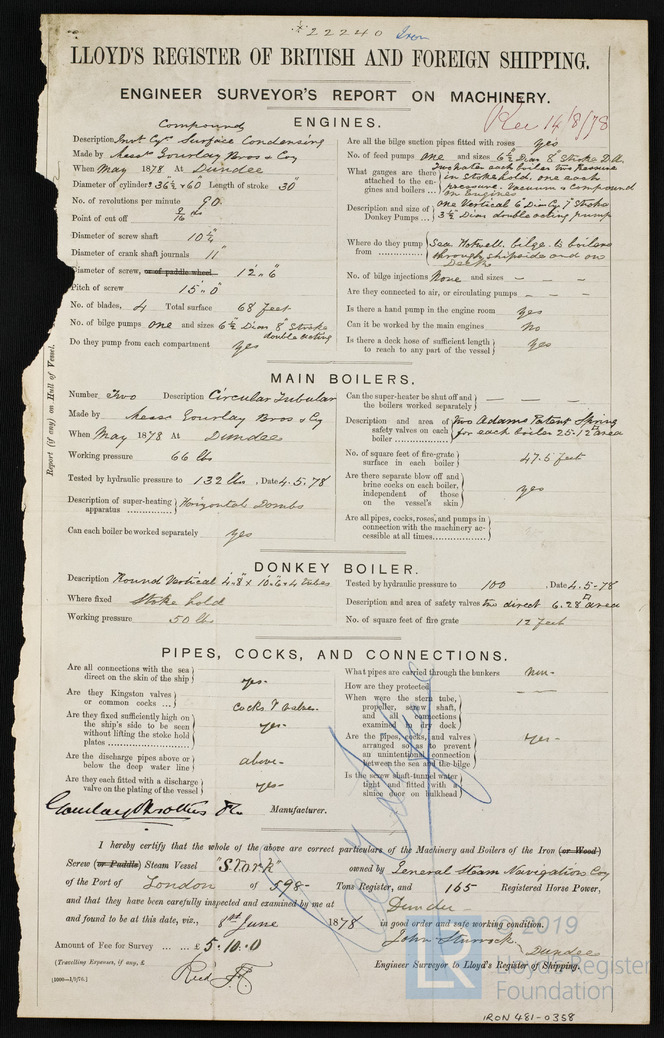 22240 Iron
LLOYD'S REGISTER OF BRITISH AND FOREIGN SHIPPING.
ENGINEER SURVEYOR'S REPORT ON MACHINERY.
Rec 14/8/78
ENGINES.
Compound
Description Invt Cyr Surface Condensing
Made by Messrs Gourlay Bros & Coy
When May 1878 At Dundee
Diameter of cylinders 36½ × 60 Length of stroke 30"
No. of revolutions per minute 90
Point of cut off
Diameter of screw shaft 10¾
Diameter of crank shaft journals 11"
Diameter of screw, or of paddle wheel 12" 6
Pitch of screw 15" 0"
No. of blades, 4 Total surface 68 feet
No. of bilge pumps one and sizes 6½ Diam 8" Stroke
double acting
Do they pump from each compartment yes
Are all the bilge suction pipes fitted with roses yes
No. of feed pumps one and sizes 6½ Diam 8" Stroke
What gauges are there attached to the engines and boilers two water each boiler two pressure in stokehold, one each pressure. Vacuum & Compound on Engines
Description and size of Donkey Pumps one Vertical 6" Diam Cyr 7" Stroke 3½ Diam double acting pump
Where do they pump from Sea Hotwell bilge. to boilers through shipside and on Deck
No. of bilge injections None and sizes — — —
Are they connected to air, or circulating pumps — — —
Is there a hand pump in the engine room yes
Can it be worked by the main engines No
Is there a deck hose of sufficient length to reach to any part of the vessel yes
Report (if any) on Hull of Vessel.
MAIN BOILERS.
Number Two Description Circular Tubular
Made by Messrs Gourlay Bros & Cy
When May 1878 At Dundee
Working pressure 66 lbs
Tested by hydraulic pressure to 132 lbs, Date 4.5.78
Description of super-heating apparatus Horizontal Dombs
Can each boiler be worked separately yes
Can the super-heater be shut off and the boilers worked separately — — —
Description and area of safety valves on each boiler two Adams Patent Spring for each boiler 25.12□" area
No. of square feet of fire-grate surface in each boiler 47.5 feet
Are there separate blow off and brine cocks on each boiler, independent of those on the vessel's skin yes
Are all pipes, cocks, roses, and pumps in connection with the machinery accessible at all times
DONKEY BOILER.
Description Round Vertical 4'.8" × 10".6 × 4 tubes
Where fixed Stoke hold
Working pressure 50 lbs
Tested by hydraulic pressure to 100, Date 4.5.78
Description and area of safety valves two direct 6.28□" area
No. of square feet of fire grate 12 feet
PIPES, COCKS, AND CONNECTIONS.
Are all connections with the sea direct on the skin of the ship yes-
Are they Kingston valves or common cocks Cocks & valves
Are they fixed sufficiently high on the ship's side to be seen without lifting the stoke hold plates yes-
Are the discharge pipes above or below the deep water line above-
Are they each fitted with a discharge valve on the plating of the vessel yes-
What pipes are carried through the bunkers
How are they protected — —
When were the stern tube, propeller, screw shaft, and all connections examined in dry dock
Are the pipes, cocks, and valves arranged so as to prevent an unintentional connection between the sea and the bilge yes-
Is the screw shaft-tunnel water tight and fitted with a sluice door on bulkhead
Gourlay Brothers & Co Manufacturer.
I hereby certify that the whole of the above are correct particulars of the Machinery and Boilers of the Iron (or Wood)
Screw (or Paddle) Steam Vessel "Stork" owned by General Steam Navigation Coy
of the Port of London of 598- Tons Register, and 165 Registered Horse Power,
and that they have been carefully inspected and examined by me at Dundee
and found to be at this date, viz., 8th June 1878 in good order and safe working condition.
Amount of Fee for Survey ... ... £ 5.10.0
John Sturrock Dundee
(Travelling Expenses, if any, £
Engineer Surveyor to Lloyd's Register of Shipping.
© 2019
LR
Lloyd's Register
Foundation
IRON 481-0358